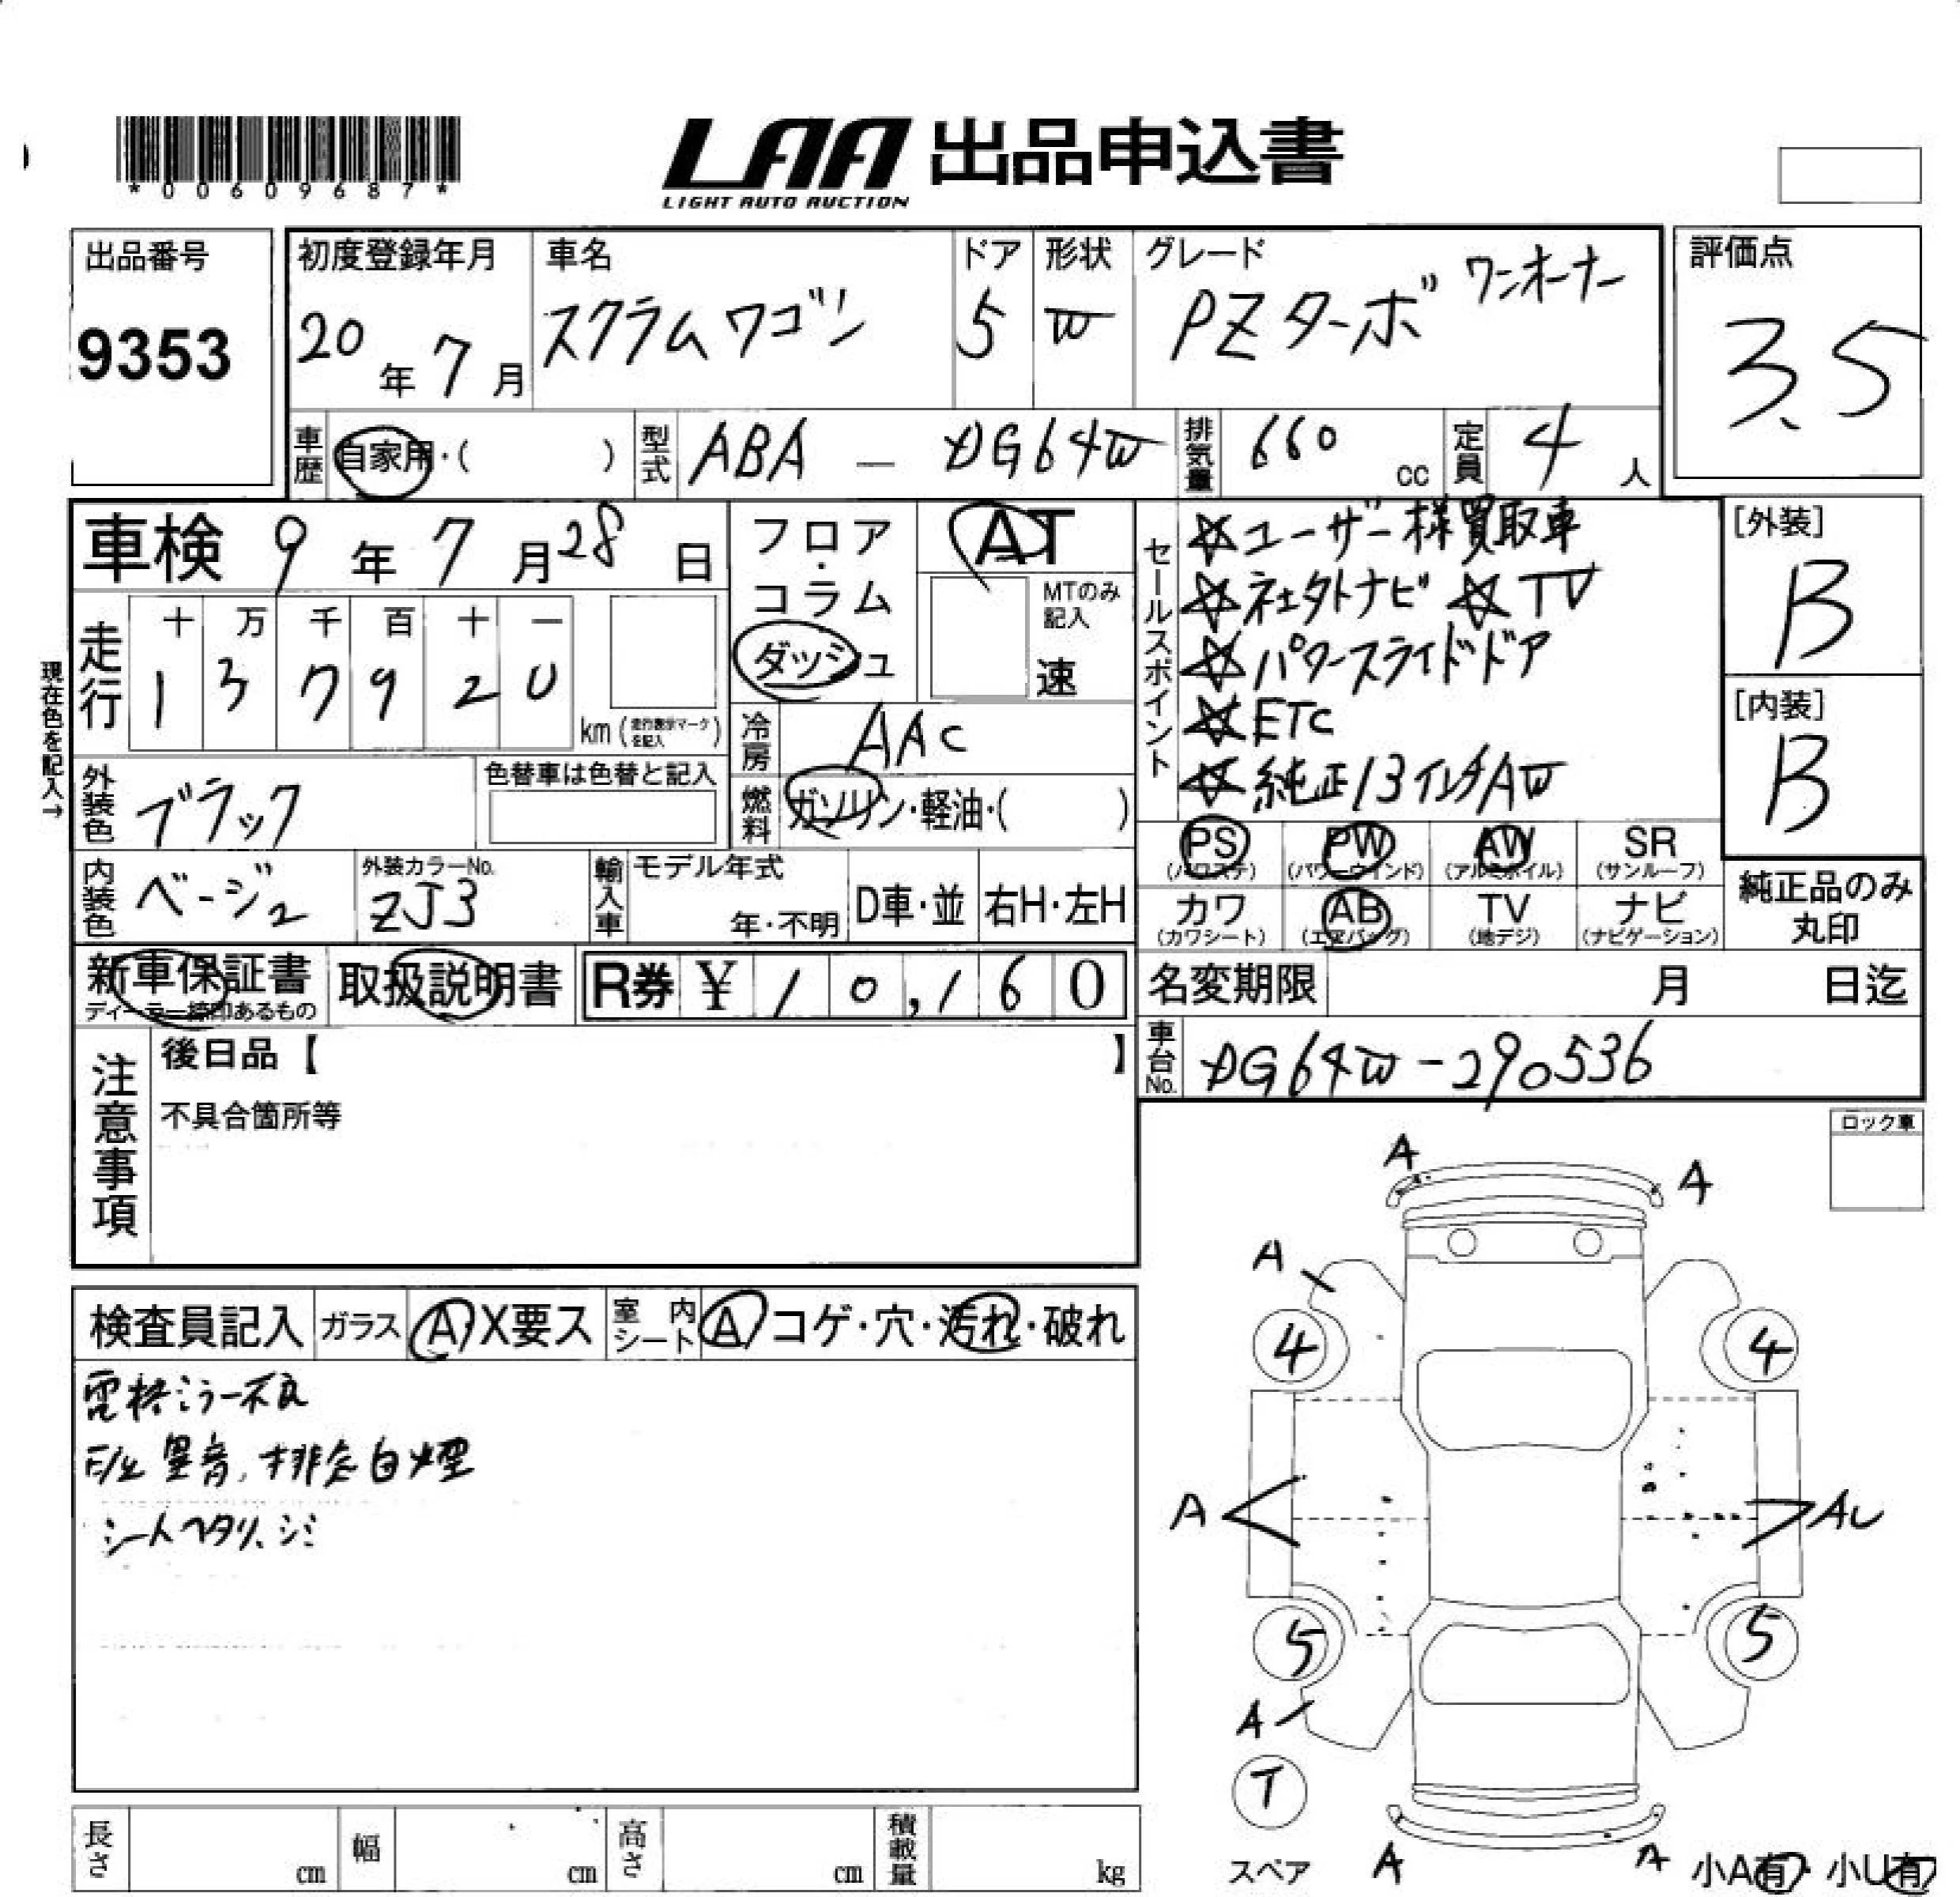 *00609687*
LAA 出品申込書
LIGHT AUTO AUCTION
出品番号
9353
初度登録年月
20年7月
車名
スクラムワゴン
ドア
5
形状
W
グレード
PZターボ ワンオーナー
評価点
3.5
車歴 自家用・( )
型式 ABA — DG64W
排気量 660 cc
定員 4人
車検 9年7月28日
フロア・コラム
ダッシュ
AT
MTのみ記入
速
セールスポイント
☆ユーザー様買取車
☆社外ナビ ☆TV
☆パワースライドドア
☆ETC
☆純正13インチAW
[外装]
B
[内装]
B
現在色を記入→
走行
十 万 千 百 十 一
1 3 7 9 2 0
km(走行表示マークを記入)
冷房 AAC
外装色 ブラック
色替車は色替と記入
燃料 ガソリン・軽油・( )
PS (パワステ)
PW (パワーウインド)
AW (アルミホイル)
SR (サンルーフ)
内装色 ベージュ
外装カラーNo.
ZJ3
輸入車
モデル年式
年・不明
D車・並
右H・左H
カワ (カワシート)
AB (エアバッグ)
TV (地デジ)
ナビ (ナビゲーション)
純正品のみ
丸印
新車保証書
ディーラー締印あるもの
取扱説明書
R券 ¥10,160
名変期限 月 日迄
注意事項
後日品【 】
不具合箇所等
車台No. DG64W-290536
ロック車
検査員記入
ガラス A・X要ス
室内シート A コゲ・穴・汚れ・破れ
電格ミラー不良
異音、排気白煙
シートヘタリ、シミ
A A
A
4 4
A AU
5 5
A
T
スペア
A A
小A有・小U有
長さ cm
幅 cm
高さ cm
積載量 kg